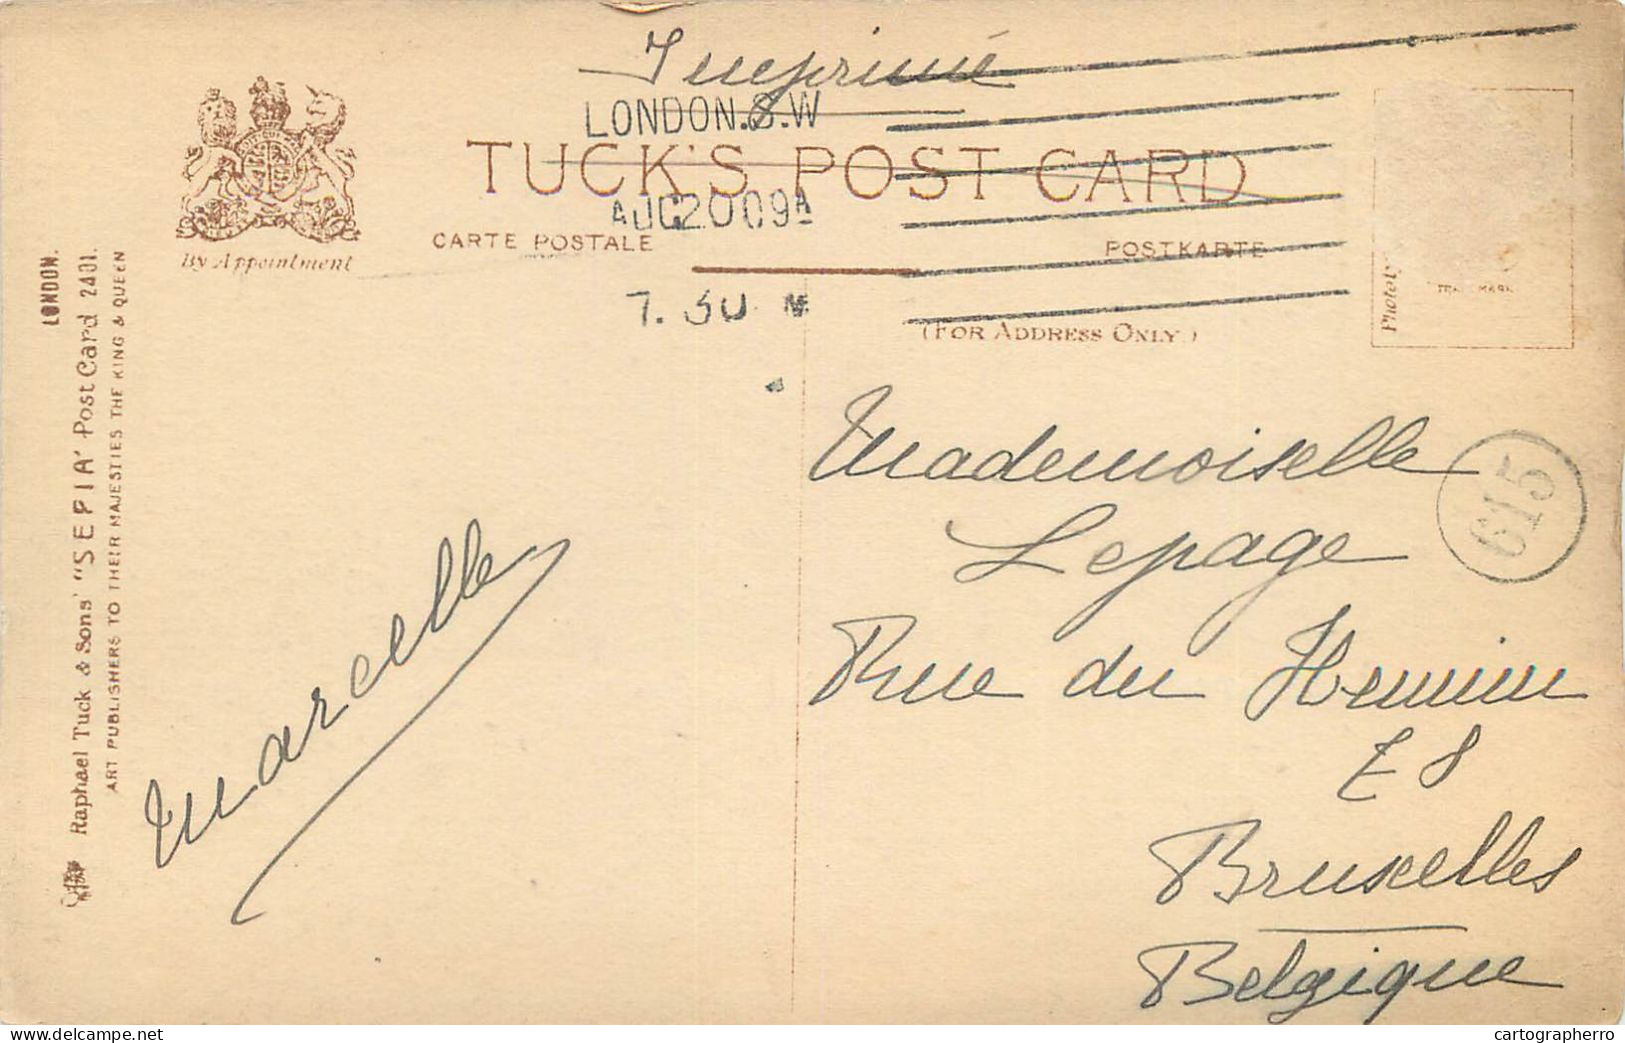 Imprimé
LONDON.S.W
TUCK'S POST CARD
AUG 20 09A
CARTE POSTALE
POSTKARTE
By Appointment
7. 30 M
(FOR ADDRESS ONLY.)
TRADE MARK
LONDON.
Raphael Tuck & Sons' "SEPIA" Post Card 2401.
ART PUBLISHERS TO THEIR MAJESTIES THE KING & QUEEN
Marcelle
Mademoiselle
Lepage
615
Rue du
Bruxelles
Belgique
delcampe.net
cartographerro